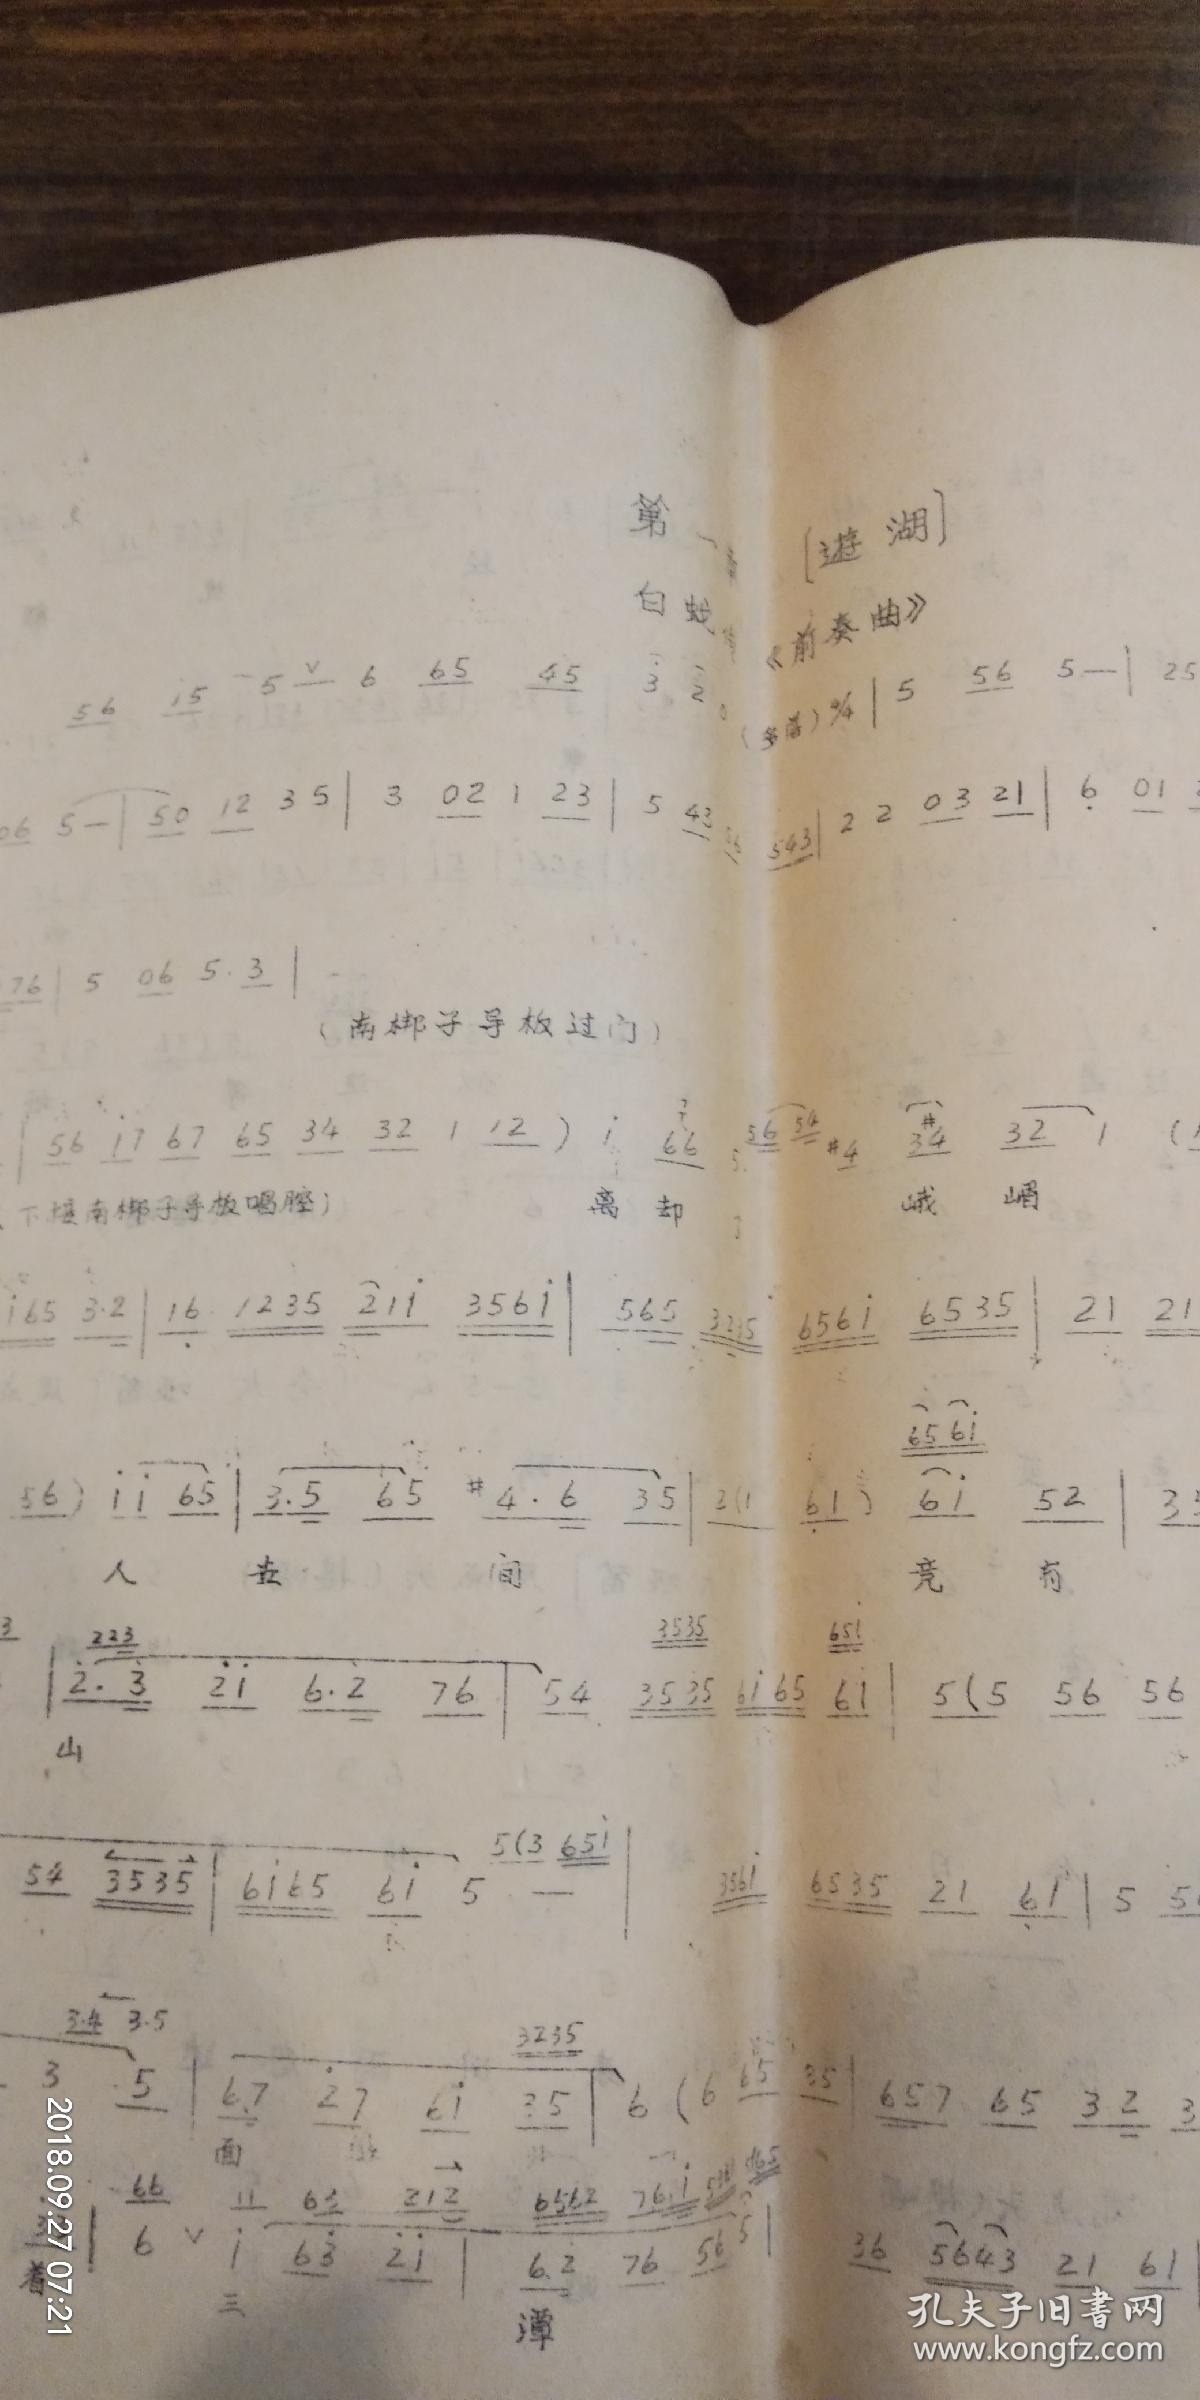 第 [遊湖]
白蛇 《前奏曲》
56 i5 5 ∨ 6 65 45 3 2 0 ( ) 4/4 | 5 56 5 — | 25
06 5 — | 50 12 3 5 | 3 02 1 23 | 5 43 543 | 2 2 03 21 | 6 01
76 | 5 06 5. 3 |
(南梆子导板过门)
| 56 i7 67 65 34 32 1 12 ) i 66 56 54 #4 #34 32 1 (
下接南梆子导板唱腔) 离却 峨嵋
i65 3·2 | 16 1235 2ii 356i | 565 656i 6535 | 21 21
656i
56) ii 65 | 3.5 65 #4.6 35 | 2(1 61) 6i 52 | 3
人 世 间 竞 有
223 3535 65i
| 2.3 2i 6.2 76 | 54 3535 6i65 6i | 5(5 56 56
山
5(3 65i
54 3535 | 6i65 6i 5 — | 356i 6535 21 61 | 5
3·4 3·5 3235
3 5 | 6.7 27 6i 35 | 6 (6 65 35 | 657 65 3.2 3
面
66 212 6562
| 6 ∨ i 63 2i | 6.2 76 56 5 | 36 5643 21 61
着 三 潭
2018.09.27 07:21
孔夫子旧書网
www.kongfz.com